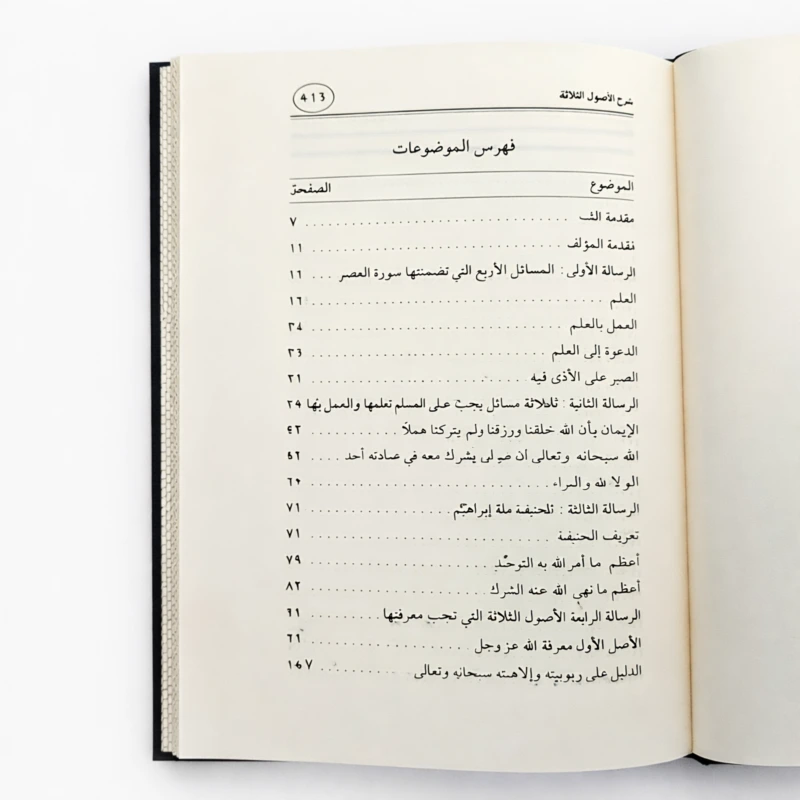 شرح الأصول الثلاثة 413
فهرس الموضوعات
الموضوع الصفحة
مقدمة ٧
المؤلف ١١
الرسالة الأولى: المسائل الأربع التي تضمنتها سورة العصر ١٦
العلم ١٦
العمل بالعلم
الدعوة إلى العلم
الصبر على الأذى فيه
الرسالة الثانية: مسائل يجب على المسلم تعلمها والعمل بها
الإيمان بأن الله خلقنا ورزقنا ولم يتركنا هملًا
الله سبحانه وتعالى يشرك معه في أحد

الرسالة الثالثة: ملة إبراهيم ٧١
تعريف ٧١
أعظم ما أمر الله به ٧٩
أعظم ما نهى الله عنه الشرك ٨٢
الرسالة الرابعة الأصول الثلاثة التي تجب معرفتها ٦١
الأصل الأول معرفة الله عز وجل ٦٦
الدليل على ربوبيته سبحانه وتعالى